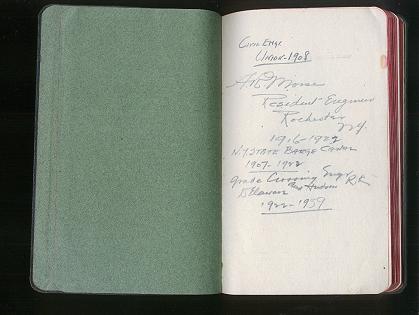 Civil Engr
Union-1908
Resident Engineer
Rochester
N.Y.
1916-1922
N.Y. STATE BARGE CANAL
1907-1922
Grade Crossing Engr
Delaware and Hudson R.R.
1922-1939